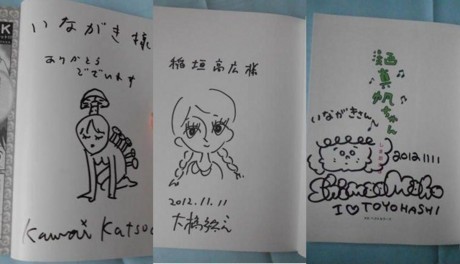 いながき様
ありがとう
ででいわす
Kawai Katsuo
稲垣高広様
2012.11.11
大橋
漫画
真帆ちゃん
いながきさん
20121111
Shimao Maho
I♥TOYOHASHI